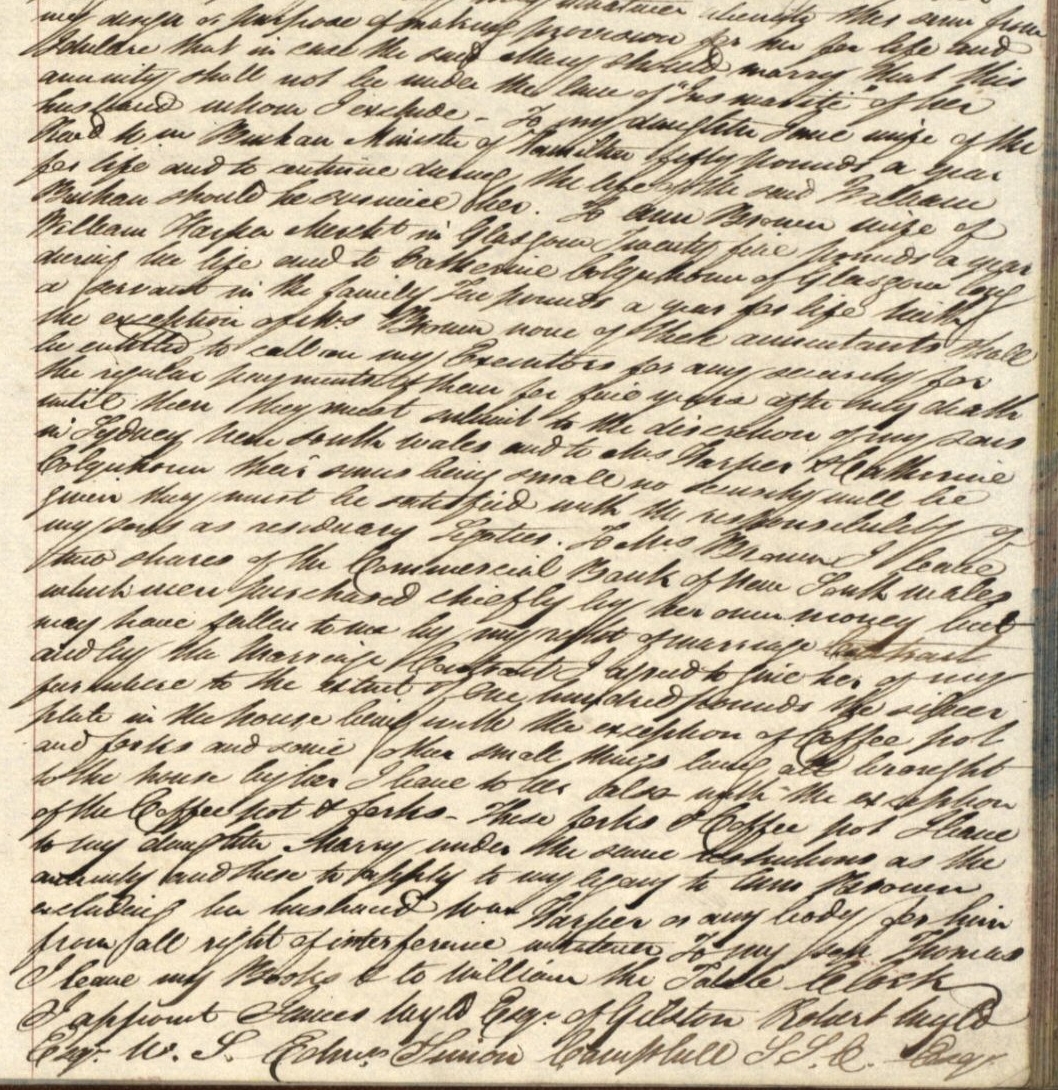 my design or purpose of making provision for her for life and
I declare that in case the said Mary should marry that this
annuity shall not be under the law of "Jus mariti" of her
husband whom I exclude - To my daughter Jane wife of the
Revd Wm Buchan Minister of Hamilton fifty pounds a year
for life and to continue during the life of the said William
Buchan should he survive her. To Ann Brown wife of
William Harper Mercht in Glasgow Twenty five pounds a year
during her life and to Catherine Colquhoun of Glasgow long
a servant in the family Five pounds a year for life with
the exception of Mrs Brown none of these annuitants shall
be entitled to call on my Executors for any security for
the regular payments of them for five years after my death
until then they must submit to the discretion of my sons
in Sydney New South Wales and to Mrs Harper & Catherine
Colquhoun their sums being small no security will be
given they must be satisfied with the responsibility of
my sons as residuary Legatees. To Mrs Brown I leave
two shares of the Commercial Bank of New South Wales
which were purchased chiefly by her own money but
may have fallen to me by my right of marriage
and by the Marriage Contract I agreed to give her of my
furniture to the extent of One hundred pounds the silver
plate in the house being with the exception of Coffee pot
and forks and some other small things being all brought
to the house by her I leave to her also with the exception
of the Coffee pot & forks - These forks & Coffee pot I leave
to my daughter Mary under the same restrictions as the
annuity and these to apply to my legacy to Ann Brown
excluding her husband Wm Harper or any body for him
from all right of interference whatever To my son Thomas
I leave my Books & to William the Table Clock
I appoint James Wyld Esqr. of Gilston Robert Wyld
Esqr. W. S. Edinr Simon Campbell S.S.C. Esqr